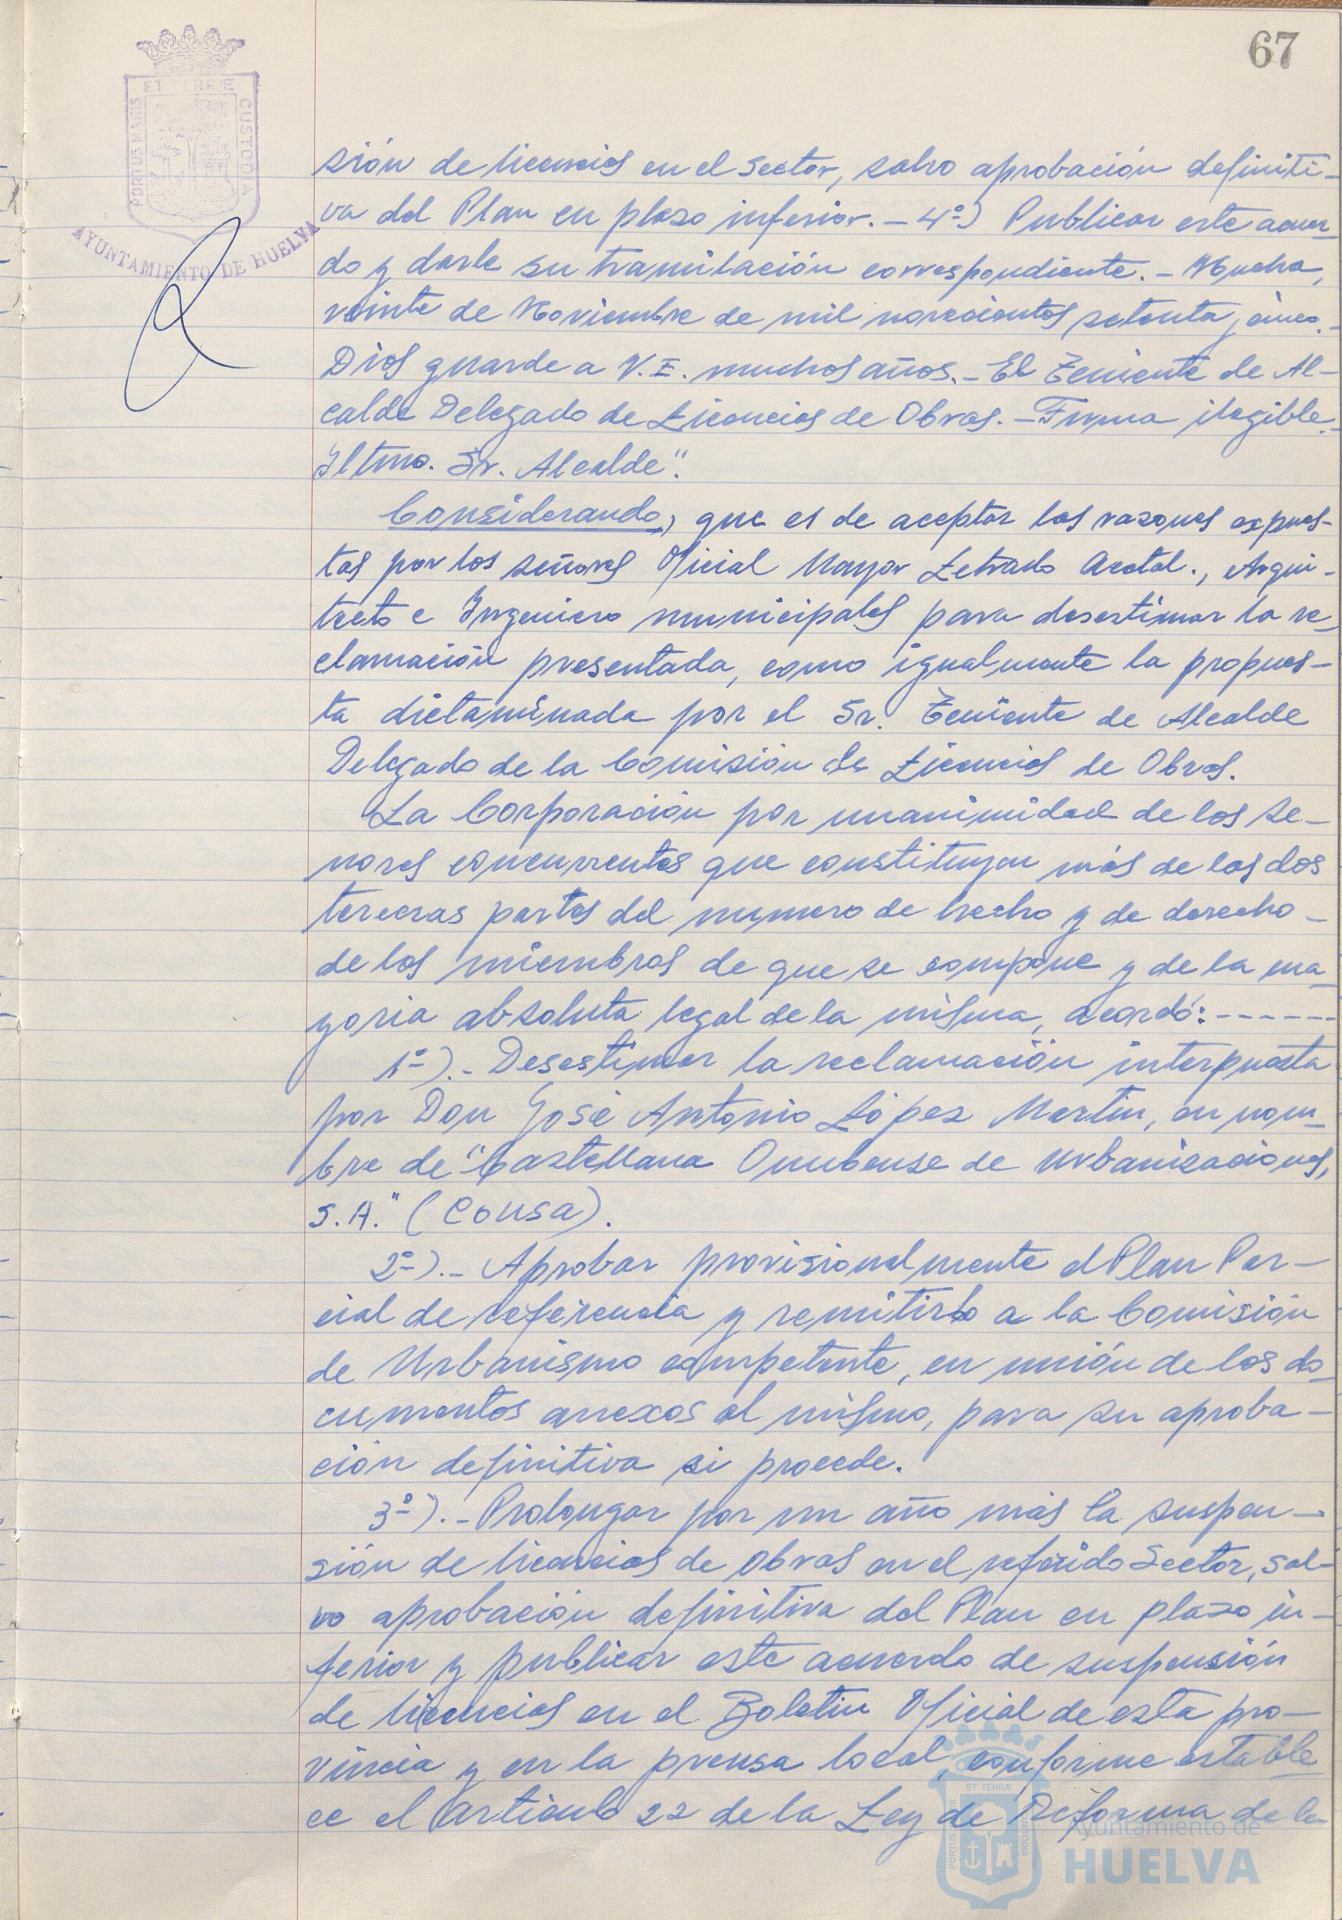 67
ET TERRÆ
PORTUS MARIS
CUSTODIA
AYUNTAMIENTO DE HUELVA
sión de licencias en el Sector, salvo aprobación definiti-
va del Plan en plazo inferior.- 4º) Publicar este acuer-
do y darle su tramitación correspondiente.- Huelva,
veinte de Noviembre de mil novecientos setenta y cinco.-
Dios guarde a V.I. muchos años.- El Teniente de Al-
calde Delegado de Licencias de Obras.- Firma ilegible.-
Iltmo. Sr. Alcalde".
Considerando, que es de aceptar las razones expues-
tas por los señores Oficial Mayor Letrado Acctal., Arqui-
tecto e Ingeniero municipales para desestimar la re-
clamación presentada, como igualmente la propues-
ta dictaminada por el Sr. Teniente de Alcalde
Delegado de la Comisión de Licencias de Obras.
La Corporación por unanimidad de los se-
nores concurrentes que constituyen más de las dos
terceras partes del numero de hecho y de derecho-
de los miembros de que se compone y de la ma
yoria absoluta legal de la misma, acordó:------
1º).- Desestimar la reclamación interpuesta
por Don José Antonio López Martin, en nom-
bre de "Castellana Onubense de Urbanizaciones,
S.A." (Cousa).
2º).- Aprobar provisionalmente el Plan Par-
cial de referencia y remitirlo a la Comisión
de Urbanismo competente, en unión de los do-
cumentos anexos al mismo, para su aproba-
ción definitiva si procede.
3º).- Prolongar por un año más la suspen-
sión de licencias de obras en el referido Sector, sal-
vo aprobación definitiva del Plan en plazo in-
ferior y publicar este acuerdo de suspensión
de licencias en el Boletin Oficial de esta pro-
vincia y en la prensa local, conforme estable
ce el articulo 22 de la Ley de Reforma de la
ET TERRÆ
PORTUS MARIS
CUSTODIA
Ayuntamiento de
HUELVA